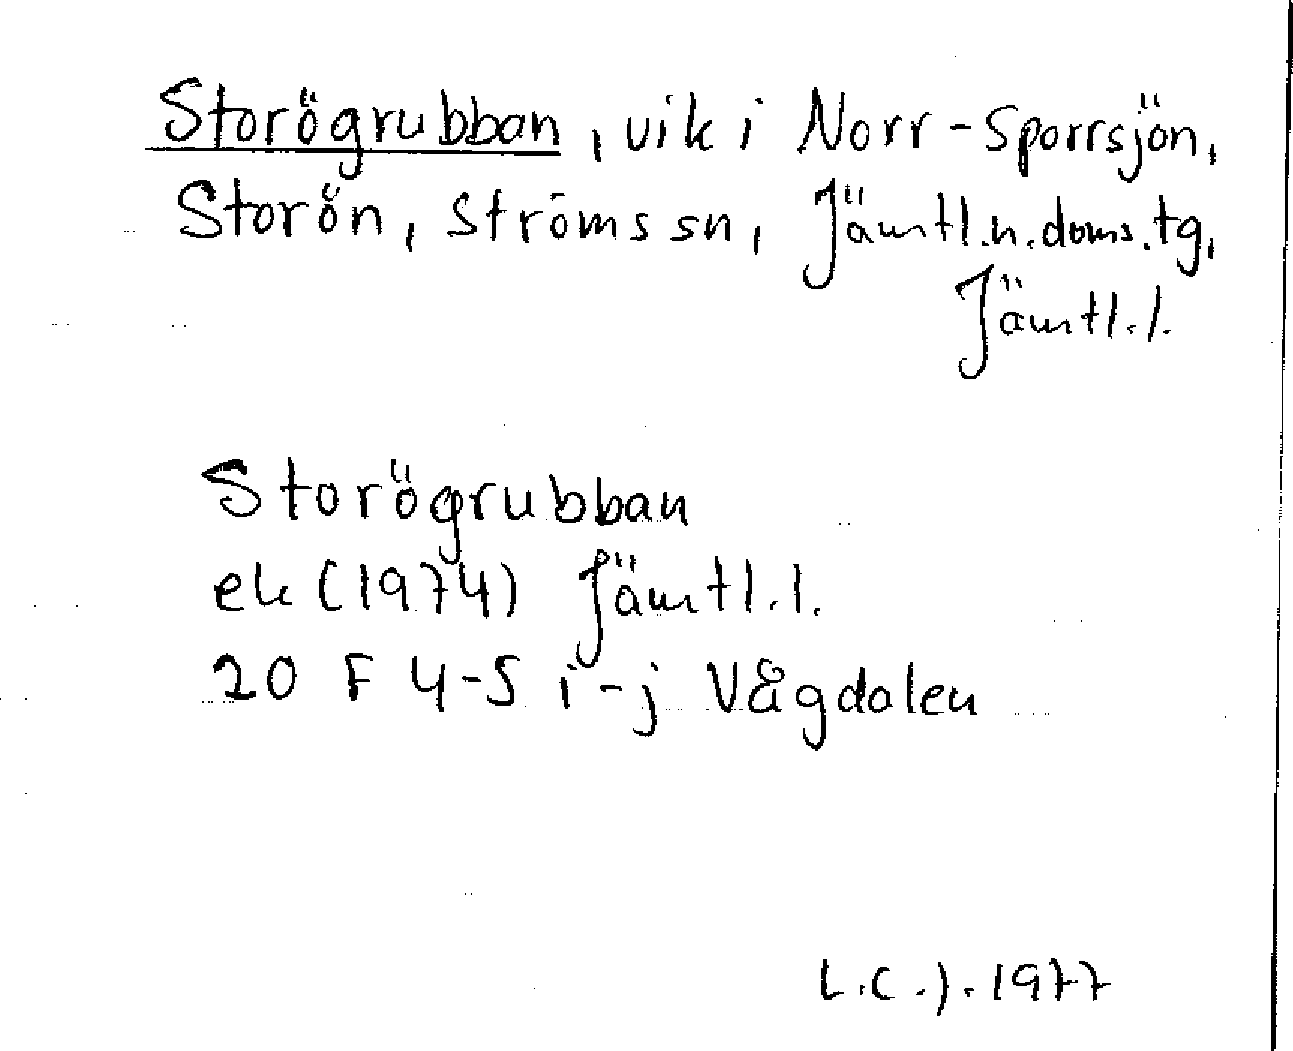 Storögrubban, vik i Norr-Sporrsjön,
Storön, Ströms sn, Jämtl.n.doms.tg,
Jämtl.l.
Storögrubban
ek (1974) Jämtl.l.
20 F 4-5 i-j Vågdalen
L.C.J. 1977